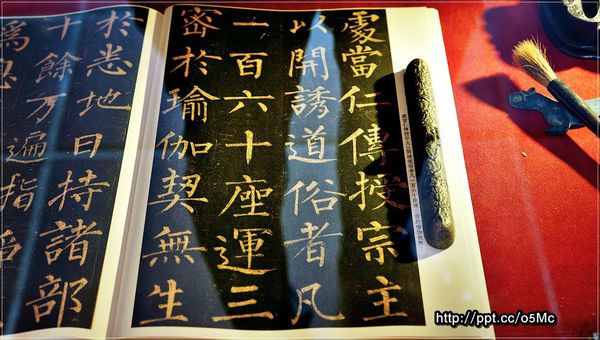 處當仁傳授宗主
以開誘道俗者凡
一百六十座運三
密於瑜伽契無生
於悉地日持諸部
十餘万遍指
為息
http://ppt.cc/o5Mc